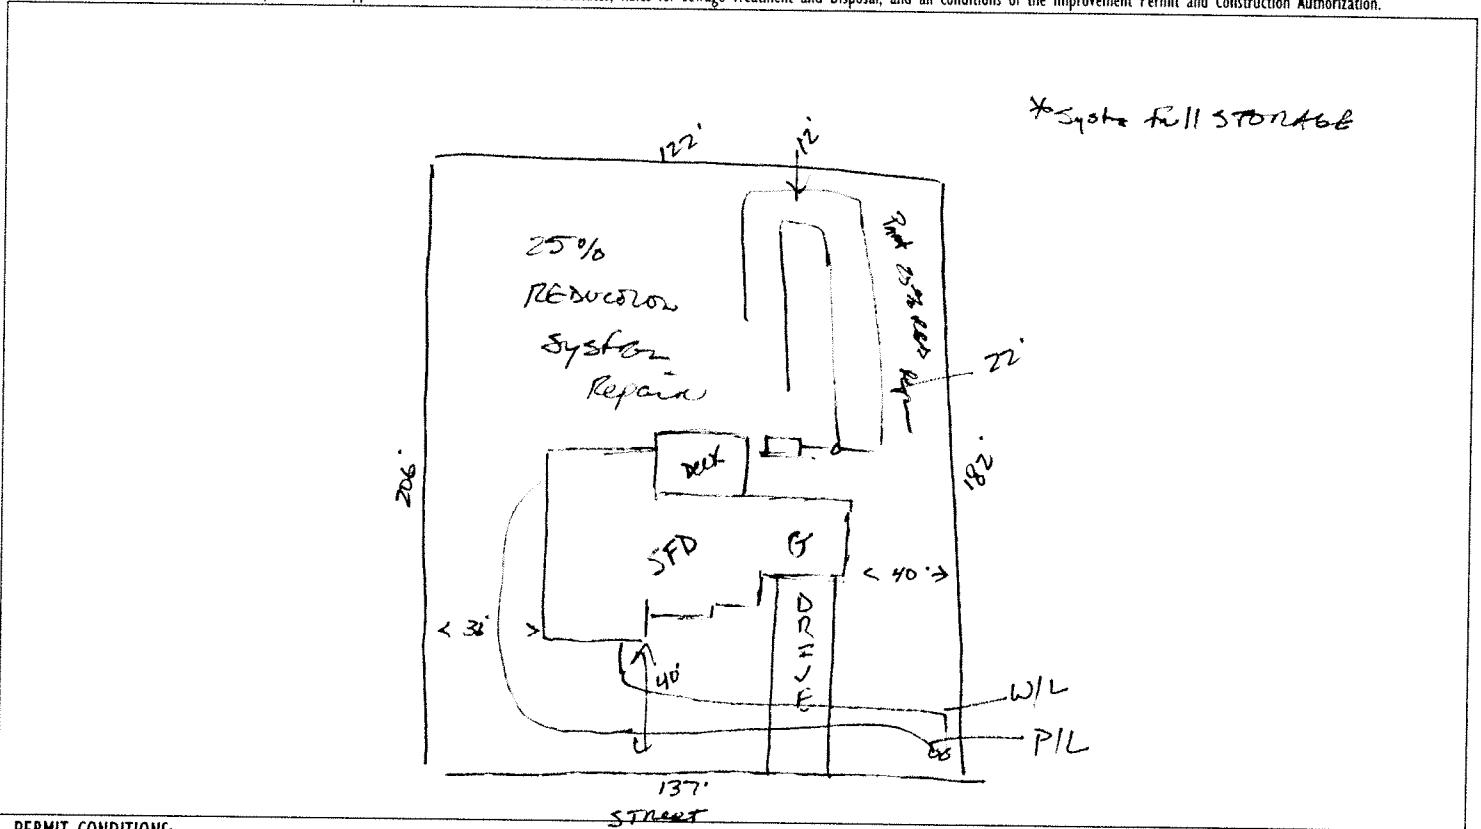 Rules for Sewage Treatment and Disposal, and all conditions of the Improvement Permit and Construction Authorization.
*Syste Full STORAGE
122'
12'
25%
REDUCTION
System
Repair
Part 25%
22'
206'
182'
Deck
SFD
G
< 40' >
DRIVE
< 36' >
40'
W/L
P/L
137'
STREET
PERMIT CONDITIONS: